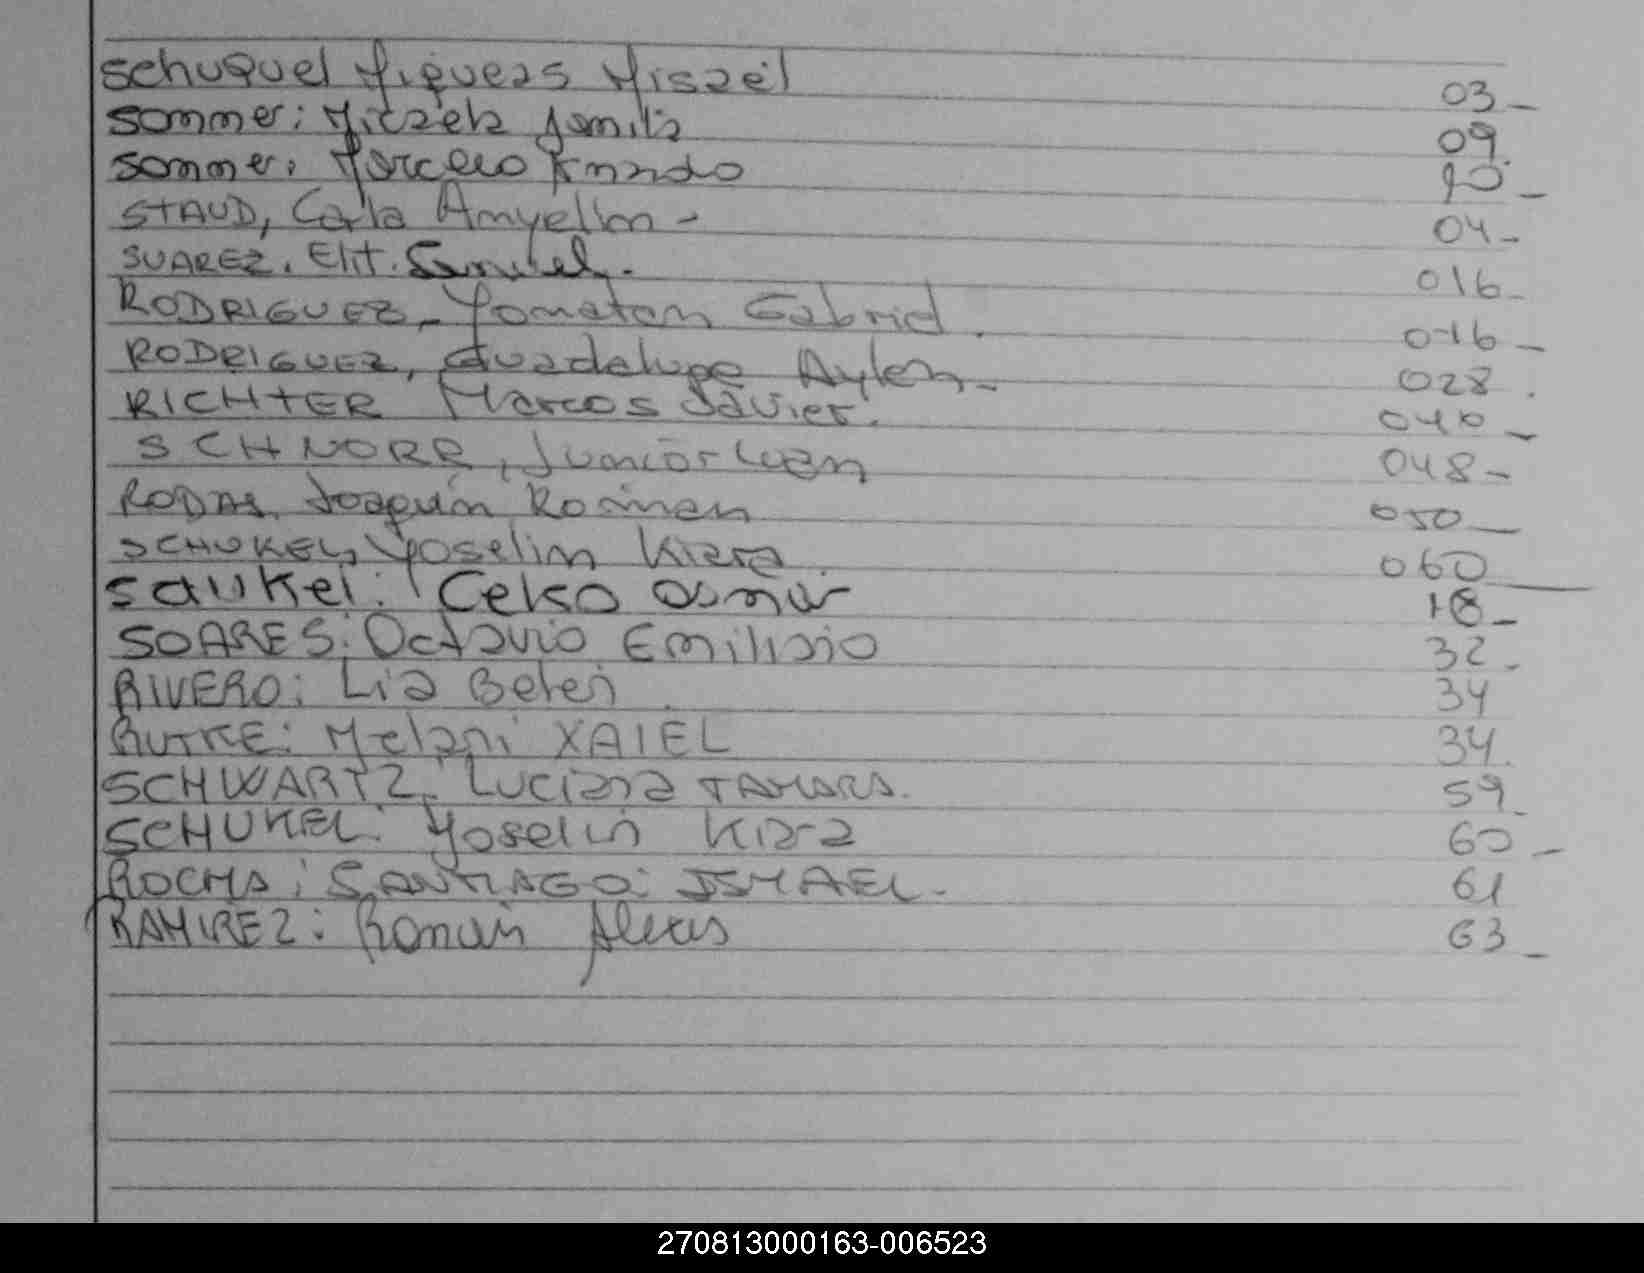 Schuquel Miqueas Misael 03 -
Sommer: Mitzela Jamila 09.
Sommer: Marcelo 10 -
STAUD, Carla Amyelim - 04 -
SUAREZ. Elit. Samuel. 016 -
RODRIGUEZ - Yonatan Gabriel. 016 -
RODRIGUEZ, Guadalupe Aylen - 028.
RICHTER Marcos Javier. 040 -
SCHNORR, Junior 048 -
RODAS, Joaquin 050 -
SCHUKEL, Yoselim Kiara. 060 -
Celso Osmar 18 -
SOARES: Octavio Emiliaio 32.
RIVERO: Lia Belen. 34
RUTKE: Melani XAIEL 34.
SCHWARTZ. Luciana TAMARA. 59.
SCHUKEL: Yoselin Kiara 60 -
ROCHA: SANTIAGO: ISMAEL. 61
RAMIREZ: Roman Alexis 63 -
270813000163-006523